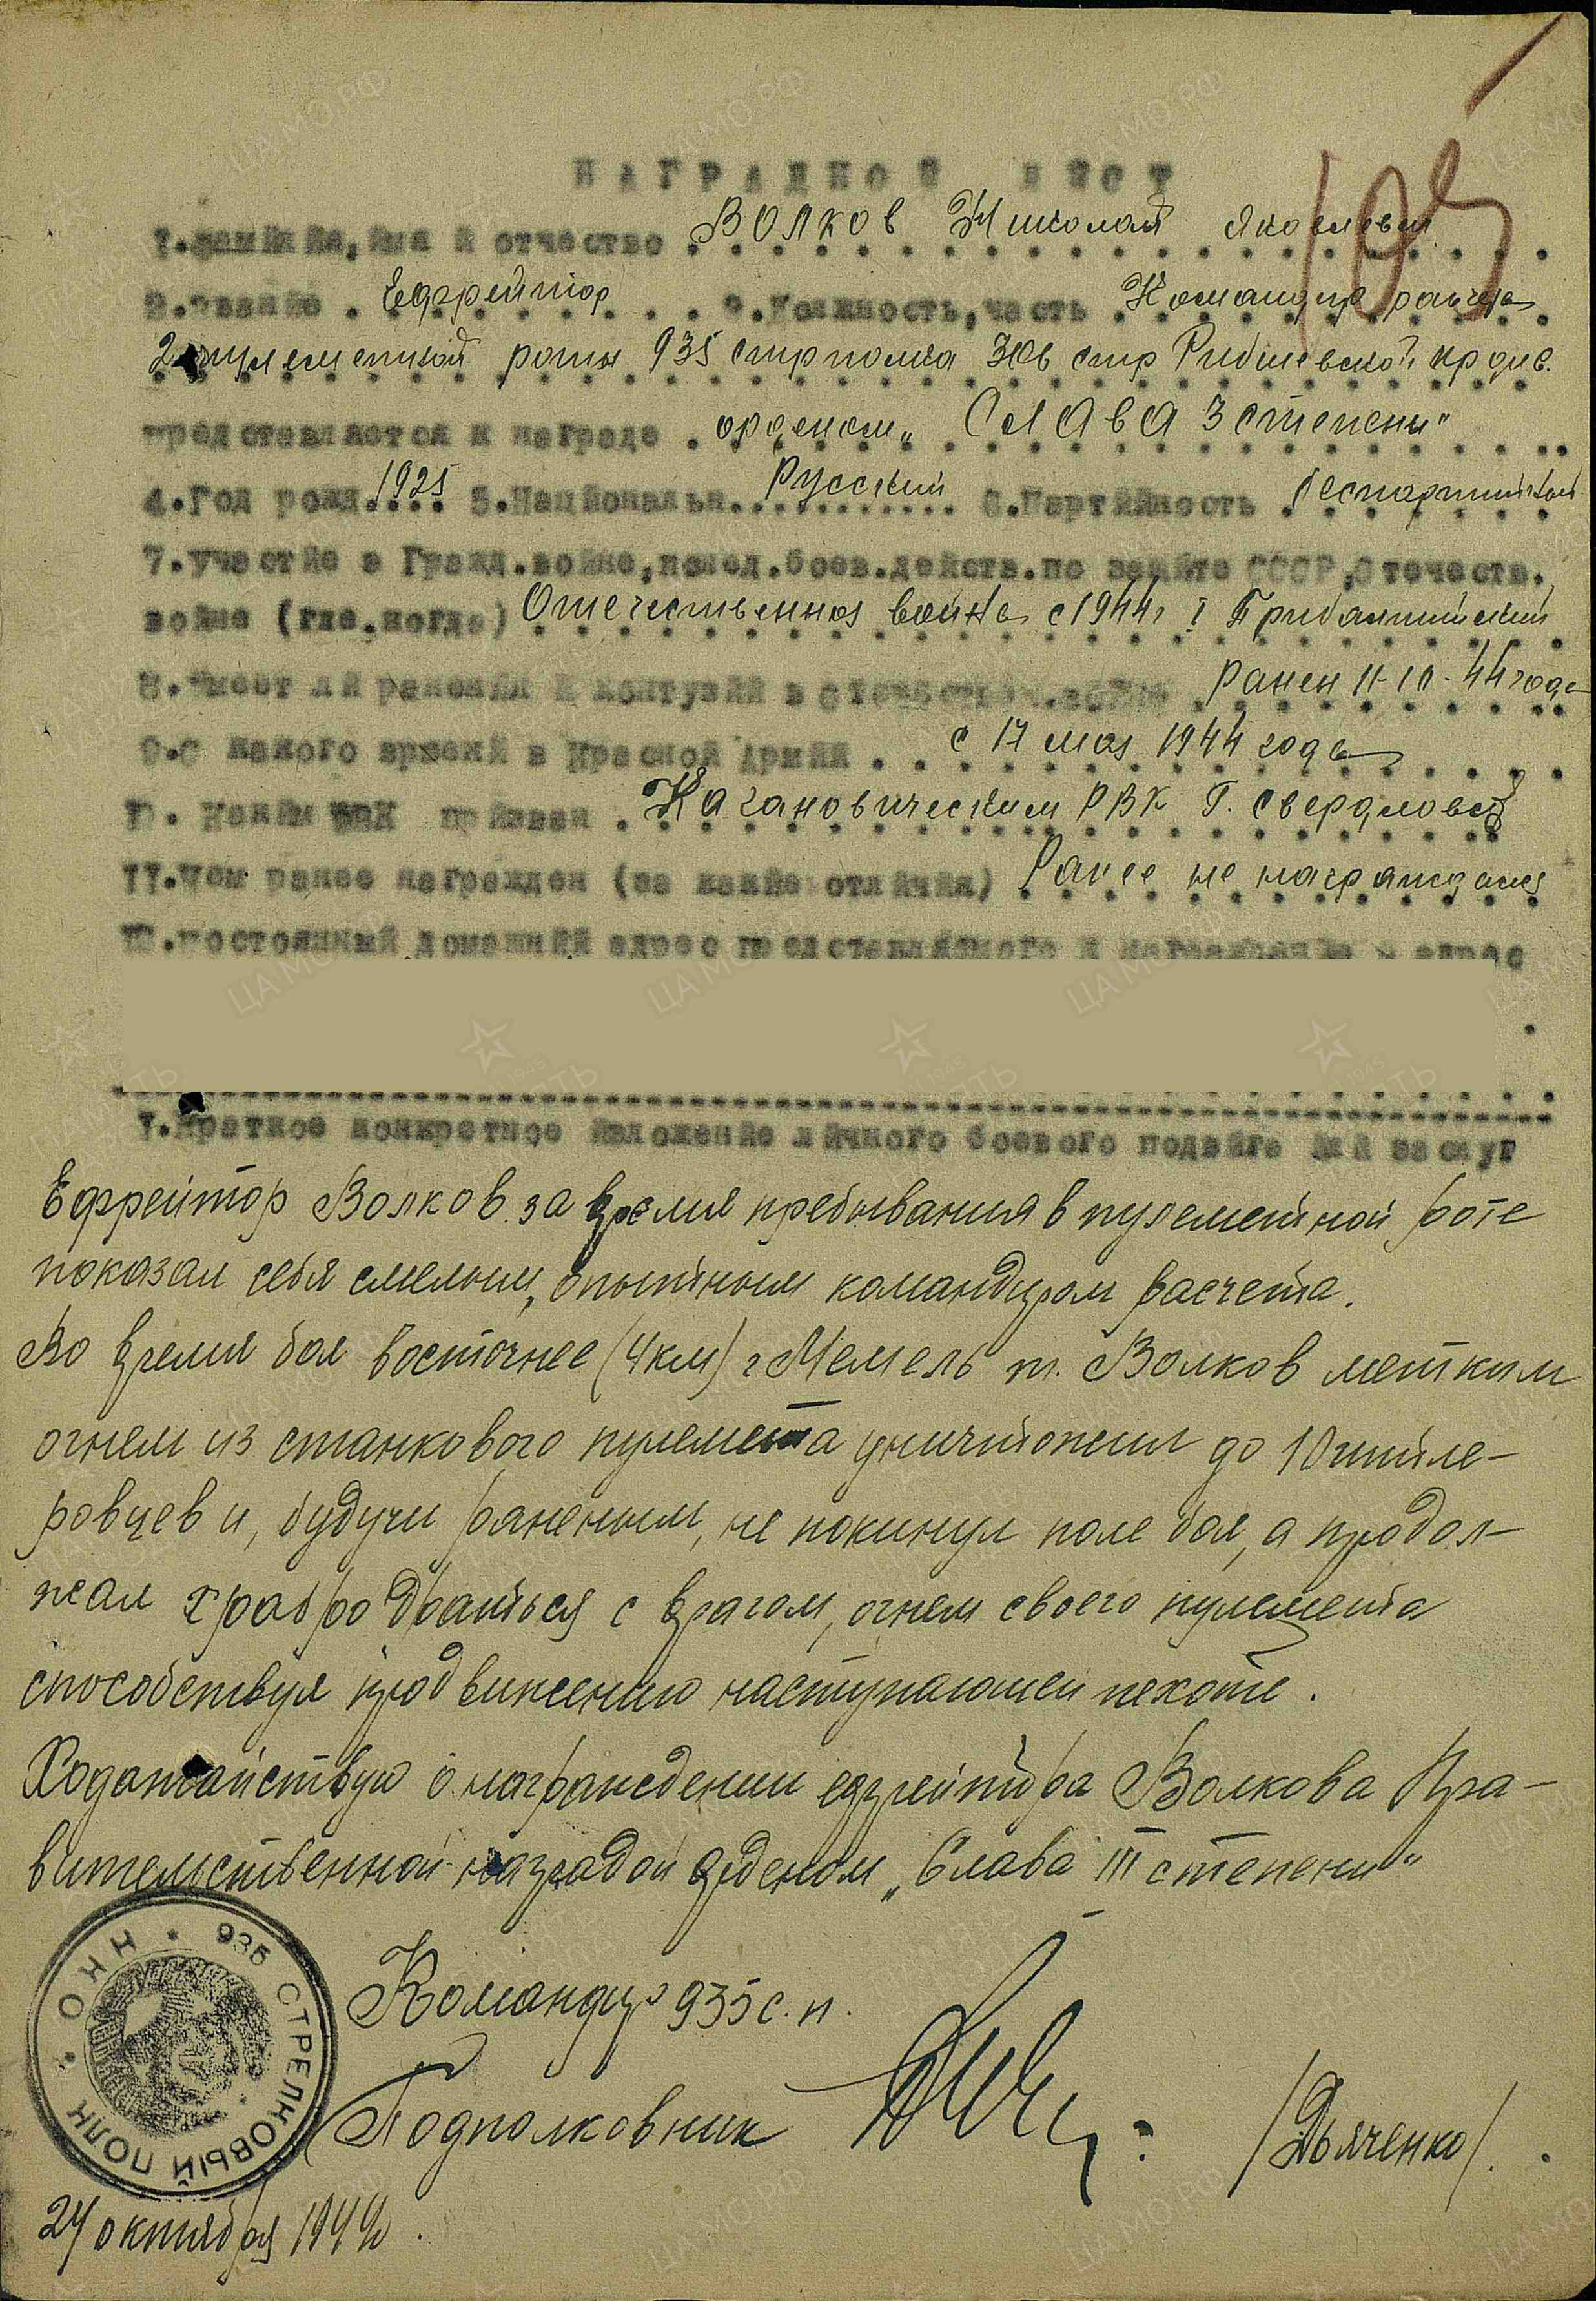 НАГРАДНОЙ ЛИСТ
105
1.Фамилия, имя и отчество Волков Николай Яковлевич
2.Звание Ефрейтор 3.Должность, часть Командир расчета
2 пулеметной роты 935 стр полка 306 стр Рибшевской кр див.
представляется к награде орденом „Слава 3 степени"
4.Год рожд. 1925 5.Национальн. Русский 6.Партийность беспартийный
7.участие в Гражд.войне, послед.боев.действ.по защите СССР, Отечеств.
войне (где, когда) Отечественная война с 1944 г I Прибалтийский
8.Имеет ли ранения и контузии в Отечествен.войне Ранен 11-10-44 года
9.С какого времени в Красной Армии с 17 мая 1944 года
10. Каким РВК призван Кагановическим РВК г. Свердловск
11.Чем ранее награжден (за какие отличия) Ранее не награждался
12.постоянный домашний адрес представляемого к награждению и адрес
1.Краткое конкретное изложение личного боевого подвига или заслуг
Ефрейтор Волков за время пребывания в пулеметной роте
показал себя смелым, опытным командиром расчета.
Во время боя восточнее (4 км) г Мемель т. Волков метким
огнем из станкового пулемета уничтожил до 10 гитле-
ровцев и, будучи раненым, не покинул поле боя, а продол-
жал храбро драться с врагом, огнем своего пулемета
способствуя продвижению наступающей пехоте.
Ходатайствую о награждении ефрейтора Волкова Пра-
вительственной наградой орденом „Слава III степени"
Командир 935 с.п.
Подполковник /Дьяченко/.
24 октября 1944 г.
935 СТРЕЛКОВЫЙ ПОЛК * НКО *